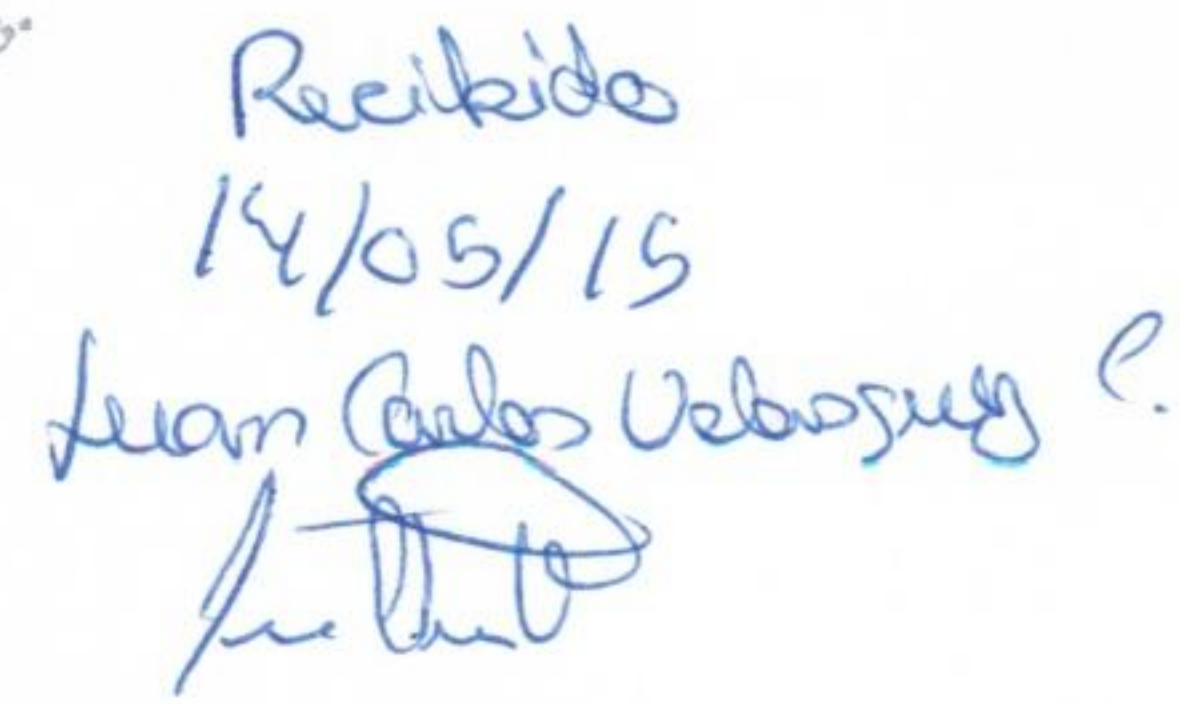 Recibido
14/05/15
Juan Carlos Velasquez C.